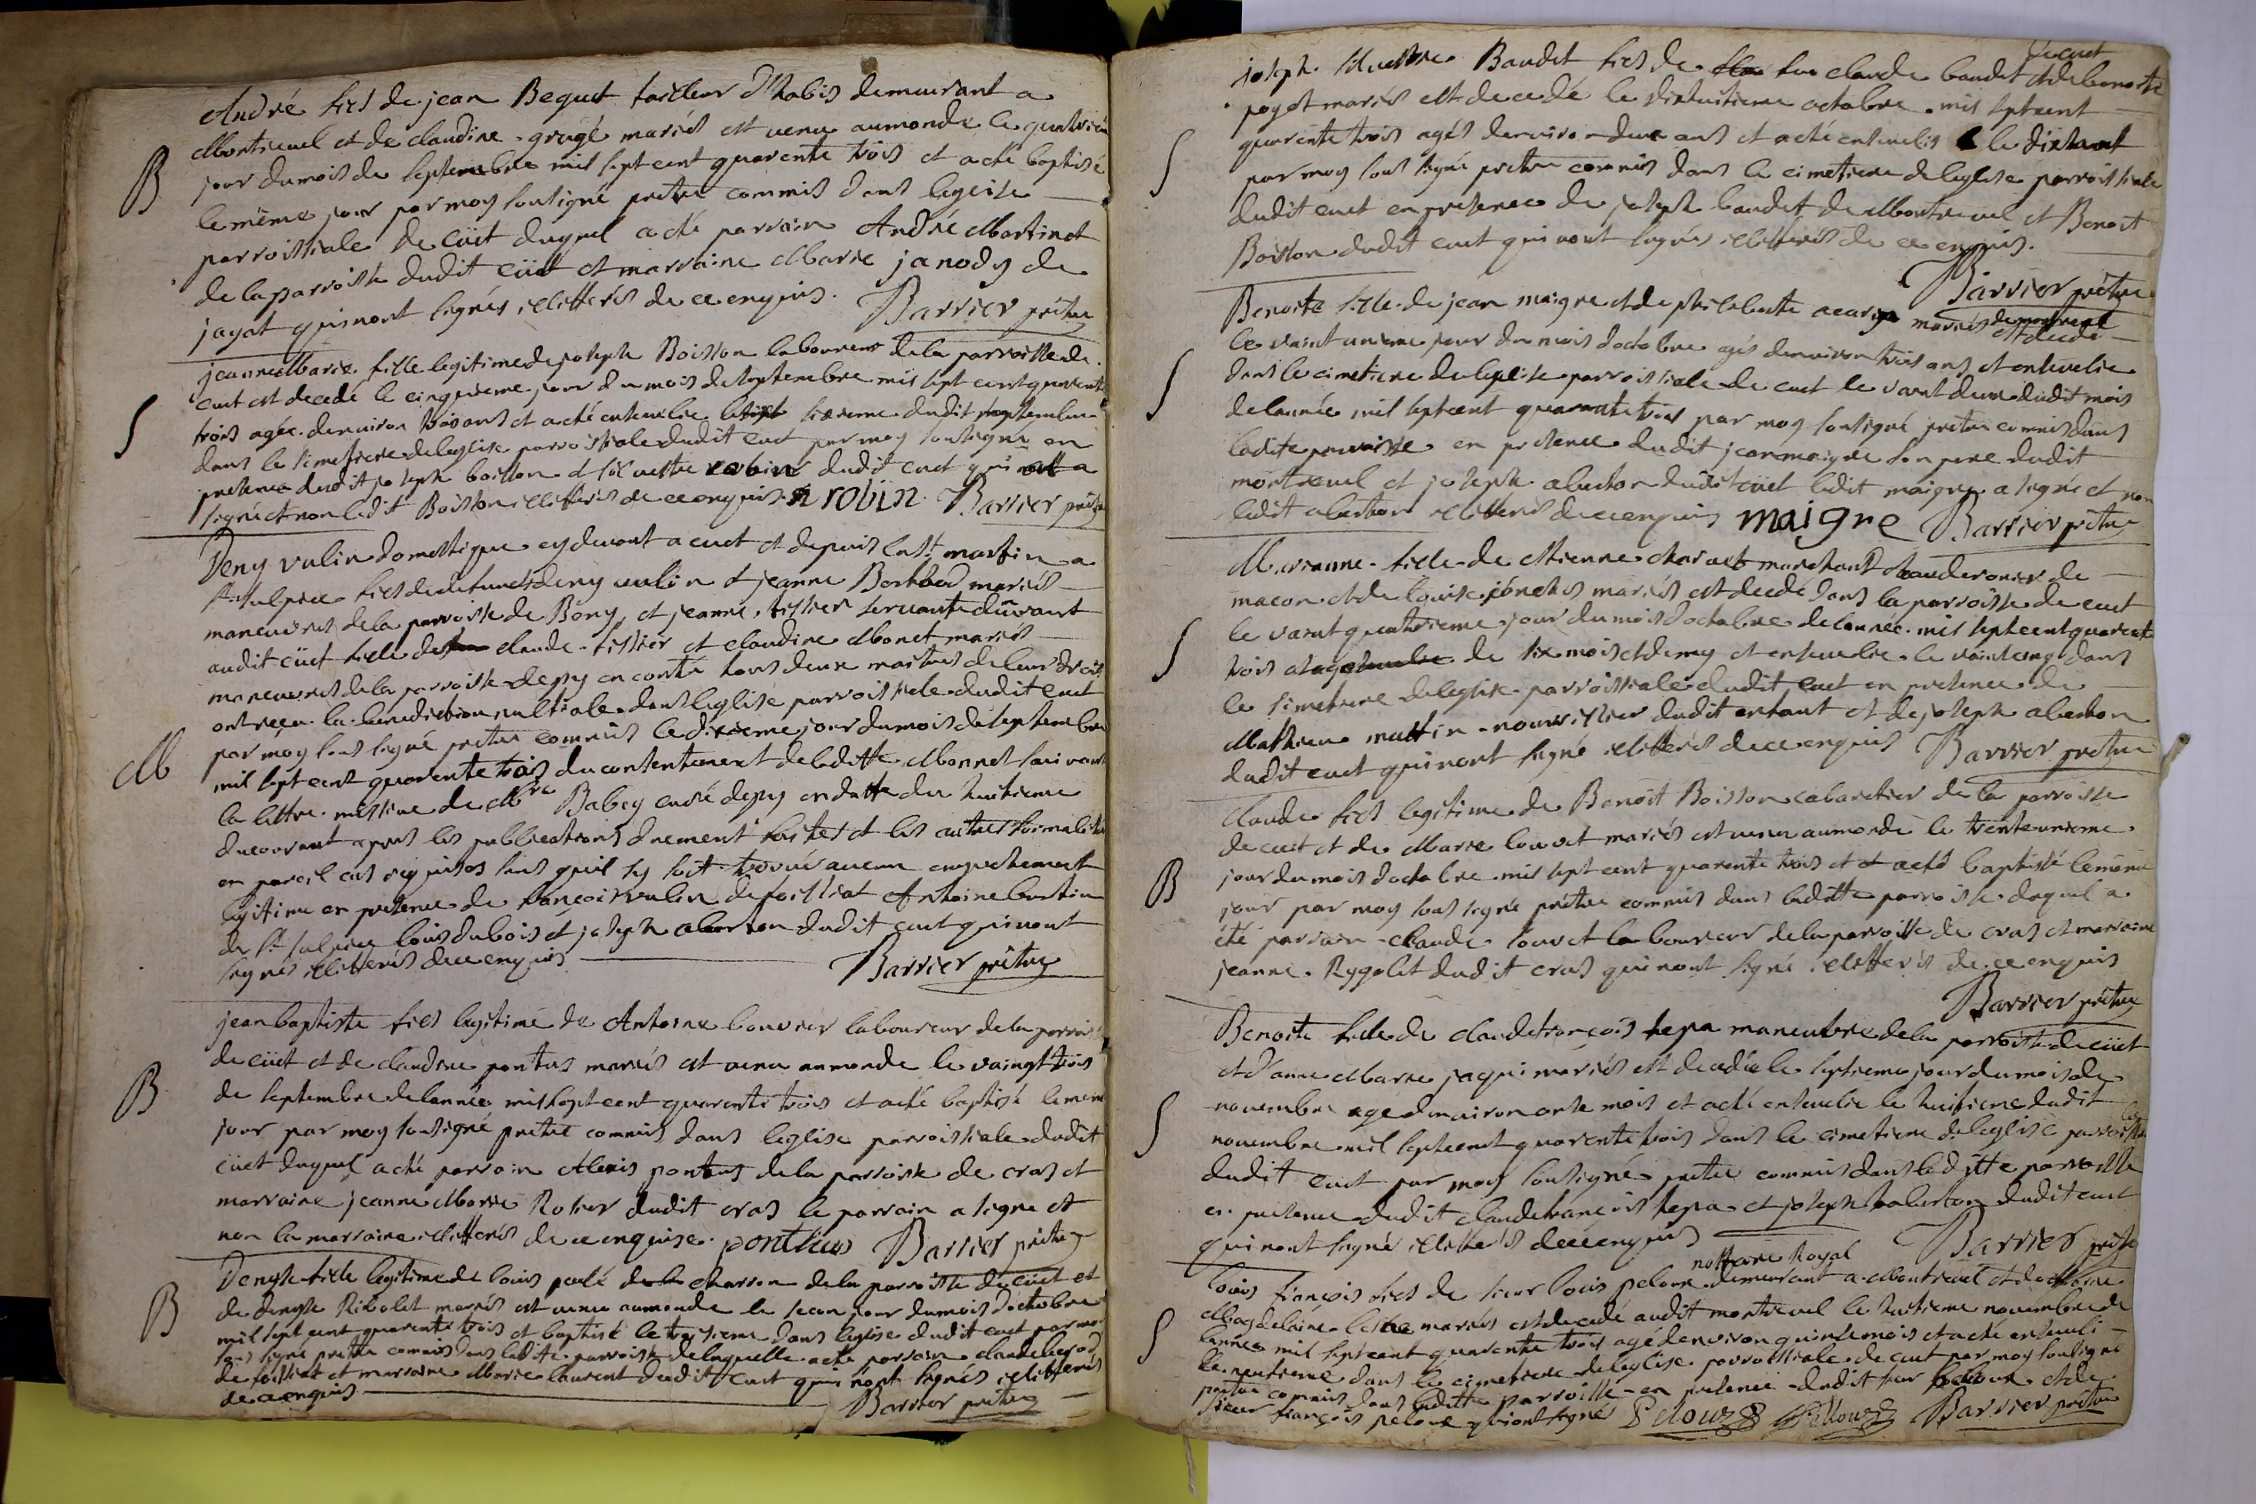 André fils de jean Bequet tailleur d'habis demeurant a
Montrevel et de claudine grugé mariés est venu au monde le quatrieme
B
jour du mois de septembre mil sept cent quarente trois et a eté baptisé
le même jour par moy soussigné prêtre commis dans leglise
parroissiale de cüet duquel a eté parrain André Martinet
de la parroisse dudit cüet et marraine Marie janody de
jayat qui nont signés illitterés de ce enquis. Barrier prêtre
jeanne Marie fille legitime de joseph Boisson laboureur de la parroisse de
cuet est decedé le cinquieme jour du mois de septembre mil sept cent quarente
S
trois agée denviron trois ans et a eté ensevelie le sixieme dudit septembre
dans le simetiere de leglise parroissiale dudit cuet par moy soussigné en
presence dudit joseph boisson et silvestre robin dudit cuet qui a
signé et non ledit Boisson illitterés de ce enquis. robin Barrier prêtre
Deny vulin domestique cydevant a cuet et depuis la st martin a
st sulpice fils de defuncts deny vulin et jeanne mariés
maneuvres de la parroisse de Bony et jeanne tissier servante
audit cüet fille de claude tissier et claudine Monet mariés
maneuvres de la parroisse de tous deux maitres de leurs droits
ont reçu la benediction nuptiale dans leglise parroissiale dudit cuet
M
par moy sous signé prêtre commis le dixieme jour du mois de septembre
mil sept cent quarente trois du contentement de laditte Monnet suivant
la lettre missive de Mre Babey curé en datte du huitieme
du courant apres les publications duement faites et les autres formalités
en pareil cas requises sans quil sy soit trouvé aucun empechement
legitime en presence de françois vulin de foissiat Antoine
de st sulpice louis dubois et joseph aberton dudit cuet qui nont
signés illitterés de ce enquis Barrier prêtre
jean baptiste fils legitime de Antoine bouvier laboureur de la parroisse
de cüet et de claudine pontus mariés est venu au monde le vaingt trois
B
de septembre de lannée mil sept cent quarente trois et a eté baptisé le meme
jour par moy soussigné prêtre commis dans leglise parroissiale dudit
cüet duquel a eté parrain Alexis pontus de la parroisse de cras et
marraine jeanne Marie Rotier dudit cras le parrain a signe et
non la marraine illitterés de ce enquise. pontus Barrier prêtre
Denyse fille legitime de louis charron de la parroisse de cüet et
B
de denyse Rigolet mariés est venu au monde le second jour du mois doctobre
mil sept cent quarente trois et baptisé le troisieme dans leglise dudit cuet par moy
sous signé prêtre commis dans laditte parroisse de laquelle a eté parrain claude
de foissiat et marraine Marie laurent dudit cuet qui nont signés illitterés
de ce enquis Barrier prêtre
joseph silvestre Baudet fils de feu claude baudet de cuet et de benoite
poyet mariés est decedé le dixhuitieme octobre mil sept cent
S
quarente trois agés denviron deux ans et a eté ensevelis le dixneuf
par moy sous signé prêtre commis dans le cimetiere de leglise parroissiale
dudit cuet en presence de joseph baudet de Montrevel et Benoit
Boisson dudit cuet qui nont signés illitterés de ce enquis.
Barrier prêtre
Benoite fille de jean maigre et de philiberte mariés de montrevel est decedé
le vaint unieme jour du mois doctobre agés denviron trois ans et ensevelie
S
dans le cimetiere de leglise parroissiale de cuet le vaint deux dudit mois
de lannée mil sept cent quarente trois par moy soussigné prêtre commis dans
ladite parroisse en presence dudit jean maigre son pere dudit
montrevel et joseph aberton dudit cüet ledit maigre a signé et non
ledit aberton illitterés de ce enquis maigre Barrier prêtre
Marianne fille de Etienne marchand chauderonier de
macon et de louise mariés est decedé dans la parroisse de cuet
S
le vaint quatrieme jour du mois doctobre de lannée mil sept cent quarente
trois agé de six mois et demy et ensevelie le vaint cinq dans
le simetiere de leglise parroissiale dudit cuet en presence de
Mathieu nourissier dudit enfant et de joseph aberton
dudit cuet qui nont signé illitterés de ce enquis Barrier prêtre
claude fils legitime de Benoit Boisson cabaretier de la parroisse
de cuet et de Marie louvet mariés est venu au monde le trente unieme
B
jour du mois doctobre mil sept cent quarente trois et a eté baptisé le même
jour par moy sous signé prêtre commis dans laditte parroisse duquel a
été parrain claude louvet laboureur de la parroisse de cras et marraine
jeanne Rygolet dudit cras qui nont signé illitterés de ce enquis
Barrier prêtre
Benoite fille de claude françois tepa maneuvre de la parroisse de cüet
et danne Marie jaqui mariés est decedée le septieme jour du mois de
S
novembre agé denviron onze mois et a eté ensevelie le huitieme dudit
novembre mil sept cent quarente trois dans le cimetiere de leglise parroissiale
dudit cuet par moy soussigné prêtre commis dans laditte parroisse
en presence dudit claude françois tepa et joseph aberton dudit cuet
qui nont signé illitterés de ce enquis Barrier prêtre
louis françois fils de sieur louis peloux nottaire Royal demeurant a Montrevel et de
S
Magdelaine mariés est decedé audit montrevel le huitieme novembre de
lannee mil sept cent quarente trois agé denviron quinze mois et a eté enseveli
le neufieme dans le cimetiere de leglise parroissiale de cuet par moy soussigné
prêtre commis dans laditte parroisse en presence dudit sieur peloux et de
sieur françois peloux qui ont signés Peloux Pelloux Barrier prêtre